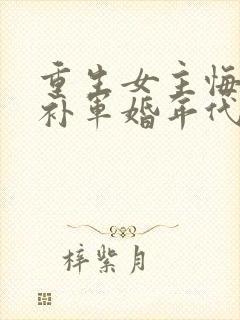 重生女主悔
补军婚年代
梓紫月